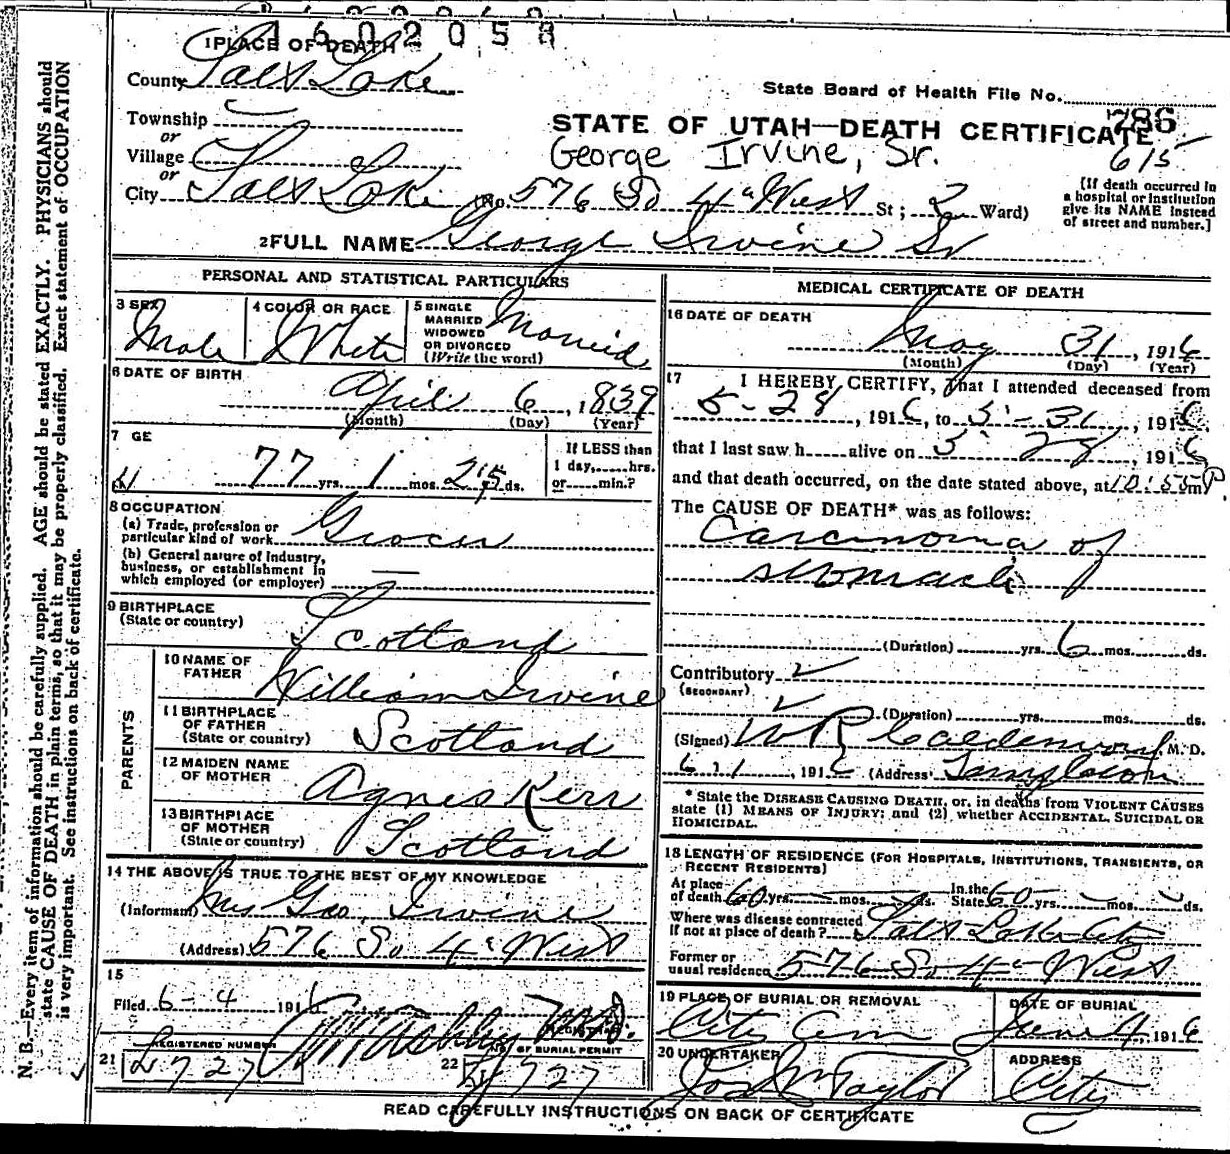 1602058
1 PLACE OF DEATH
County Salt Lake
State Board of Health File No.
786
Township
or
Village
or
City Salt Lake (No. 576 So 4th West St; 2 Ward)
STATE OF UTAH—DEATH CERTIFICATE
615
George Irvine, Sr.
[If death occurred in
a hospital or institution
give its NAME instead
of street and number.]
2 FULL NAME George Irvine Sr
PERSONAL AND STATISTICAL PARTICULARS
3 SEX Male
4 COLOR OR RACE White
5 SINGLE
MARRIED
WIDOWED
OR DIVORCED
(Write the word) Married
6 DATE OF BIRTH
April 6, 1839
(Month) (Day) (Year)
7 GE
77 yrs. 1 mos. 25 ds.
If LESS than
1 day,......hrs.
or......min.?
8 OCCUPATION
(a) Trade, profession or
particular kind of work Grocer
(b) General nature of industry,
business, or establishment in
which employed (or employer)
9 BIRTHPLACE
(State or country) Scotland
PARENTS
10 NAME OF
FATHER William Irvine
11 BIRTHPLACE
OF FATHER
(State or country) Scotland
12 MAIDEN NAME
OF MOTHER Agnes Kerr
13 BIRTHPLACE
OF MOTHER
(State or country) Scotland
14 THE ABOVE IS TRUE TO THE BEST OF MY KNOWLEDGE
(Informant) Mrs Geo. Irvine
(Address) 576 So 4th West
15
Filed 6-4 191
REGISTRAR
REGISTERED NUMBER
21 2727
22 NO. OF BURIAL PERMIT
727
MEDICAL CERTIFICATE OF DEATH
16 DATE OF DEATH
May 31, 1916
(Month) (Day) (Year)
17 I HEREBY CERTIFY, That I attended deceased from
5-28, 1916, to 5-31, 1916,
that I last saw h......alive on 5 28, 1916
and that death occurred, on the date stated above, at 10:55 m P.
The CAUSE OF DEATH* was as follows:
Carcinoma of
stomach
(Duration) yrs. 6 mos. ds.
Contributory
(SECONDARY)
(Duration) yrs. mos. ds.
(Signed) W R Calderwood, M. D.
6-1, 1916 (Address) Templeton
* State the DISEASE CAUSING DEATH, or, in deaths from VIOLENT CAUSES
state (1) MEANS OF INJURY; and (2) whether ACCIDENTAL, SUICIDAL OR
HOMICIDAL.
18 LENGTH OF RESIDENCE (FOR HOSPITALS, INSTITUTIONS, TRANSIENTS, OR
RECENT RESIDENTS)
At place
of death 60 yrs. mos. ds. In the
State 60 yrs. mos. ds.
Where was disease contracted
If not at place of death? Salt Lake City
Former or
usual residence 576 So 4th West
19 PLACE OF BURIAL OR REMOVAL
City Cem
DATE OF BURIAL
June 4, 1916
20 UNDERTAKER
Jos Wm Taylor
ADDRESS
City
READ CAREFULLY INSTRUCTIONS ON BACK OF CERTIFICATE
N. B.—Every item of information should be carefully supplied. AGE should be stated EXACTLY. PHYSICIANS should
state CAUSE OF DEATH in plain terms, so that it may be properly classified. Exact statement of OCCUPATION
is very important. See instructions on back of certificate.